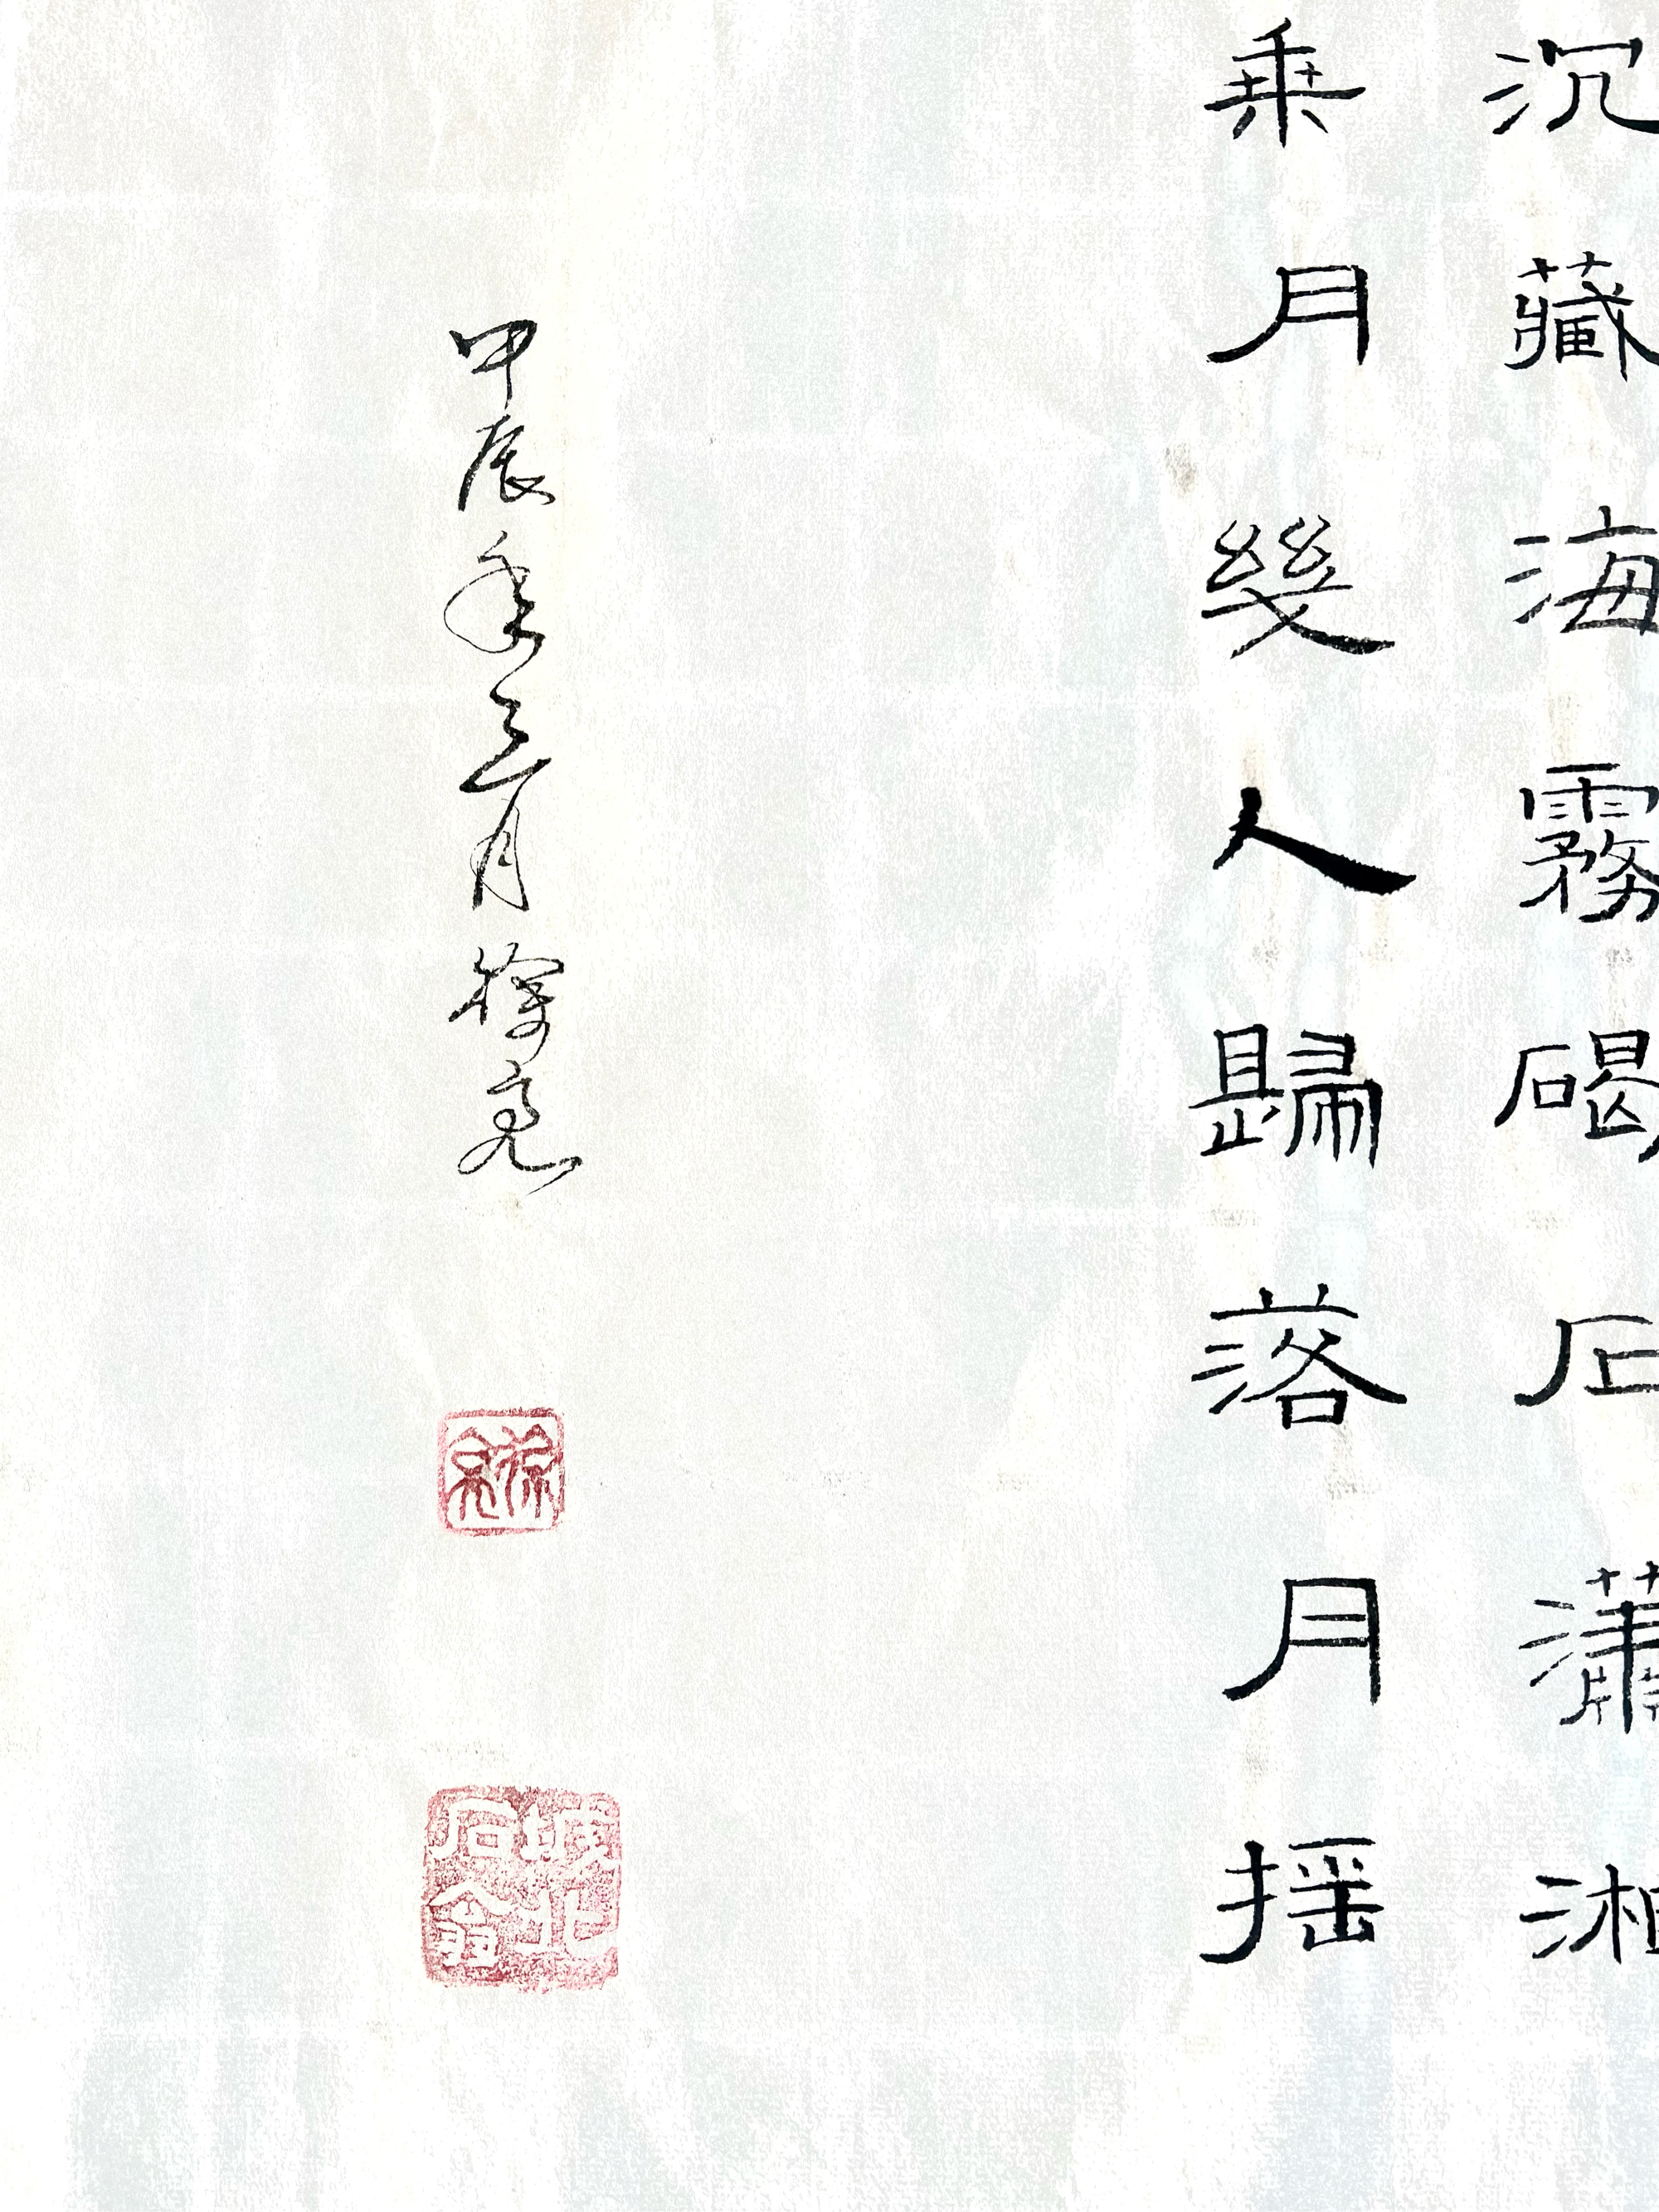 沉藏海霧碣石瀟湘
乗月幾人歸落月揺
甲辰年三月徐亮
徐亮
城北
石翁